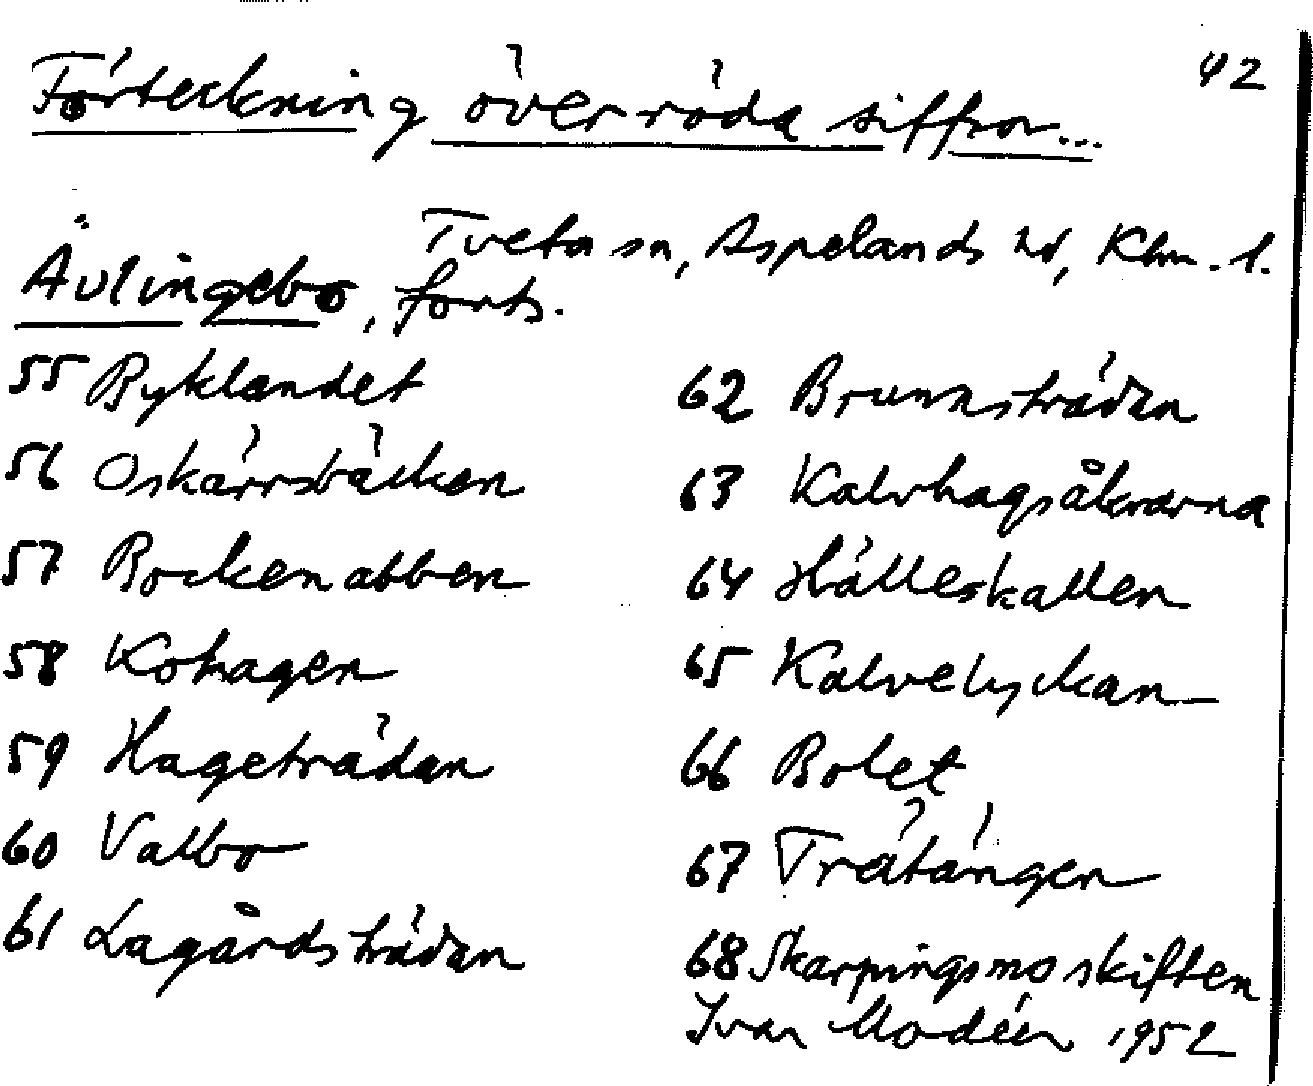 42
Förteckning över röda siffror...
Tveta sn, Aspelands hd, Klm. l.
Ävlingebo, forts.
55 Byklandet
56 Oskärrsbäcken
57 Bockenabben
58 Kohagen
59 Hageträdan
60 Vallbo
61 Lagårdsträdan
62 Brunnsträdan
63 Kalvhagsåkrarna
64 Hälleskallen
65 Kalvelyckan
66 Bolet
67 Trätängen
68 Skarpingsmoskiften
Ivar Modéer 1952